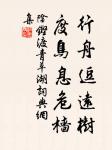 行舟逗遠樹
度鳥息危檣
陰鏗渡青草湖詞典網
集